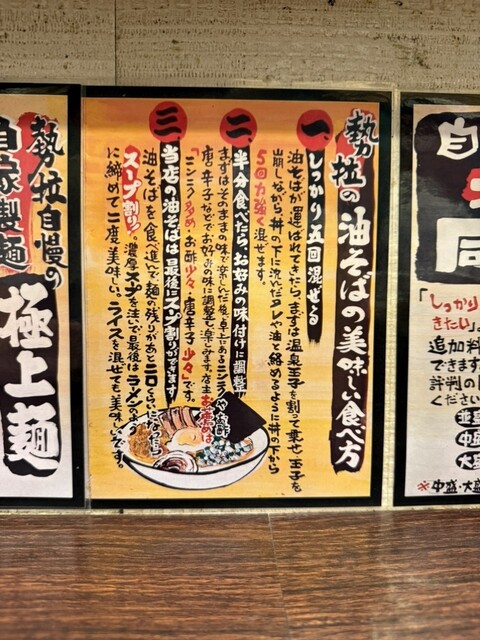 勢拉の油そばの美味しい食べ方
一、しっかり五回混ぜる
油そばが運ばれてきたら、まずは温泉玉子を割って乗せ、玉子を
崩しながら丼の下に沈んだタレや油と絡めるように丼の下から
5回力強く混ぜます。
二、半分食べたら、お好みの味付けに調整
まずはそのままの味で楽しんだ後、卓上にあるニンニクやお酢
唐辛子などでお好みの味に調整し楽しみます。店主お薦めは
「ニンニク多め、お酢少々・唐辛子少々」です。
三、当店の油そばは最後にスープ割りができます
油そばを食べ進んで麺の残りがあと二口くらいになったら
スープ割り!濃厚スープを注いで最後はラーメンのよう
に締めて二度美味しい。ライスを混ぜても美味しいです。
勢拉自慢の
自家製麺
極上麺
自
同
「しっかり
きたい」
追加料
できます
評判の
ください
並
中盛
大盛
※中盛・大盛